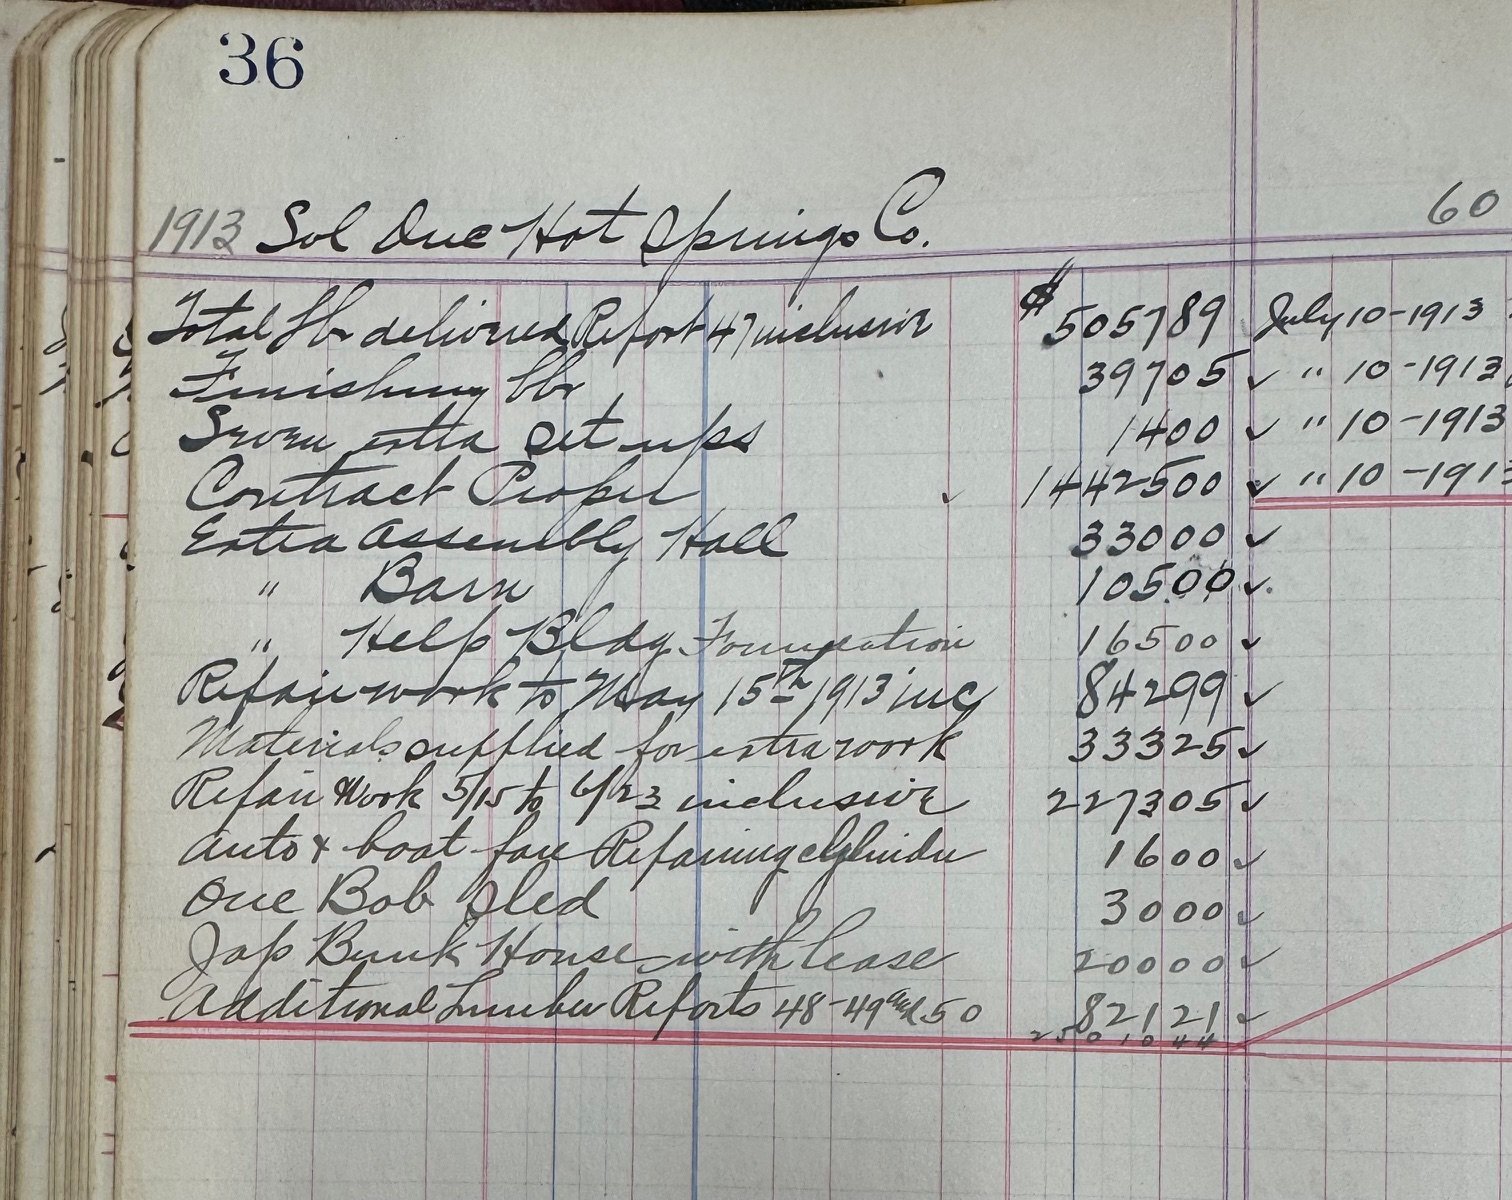 36
1913 Sol Duc Hot Springs Co. 60
Total lbr delivered Report 47 inclusive $ 505789 July 10-1913
Finishing lbr 39705 ✓ " 10-1913
Seven extra set ups 1400 ✓ " 10-1913
Contract Proper ✓ 1442500 ✓ " 10-1913
Extra Assembly Hall 33000 ✓
" Barn 10500 ✓
" Help Bldg Foundation 16500 ✓
Repair work to May 15th 1913 inc 84299 ✓
Materials supplied for extra work 33325 ✓
Repair Work 5/15 to 6/23 inclusive 227305 ✓
Auto & boat fare Repairing cylinder 1600 ✓
One Bob Sled 3000 ✓
Jap Bunk House with lease 20000 ✓
Additional Lumber Reports 48-49 and 50 82121 ✓
2501044